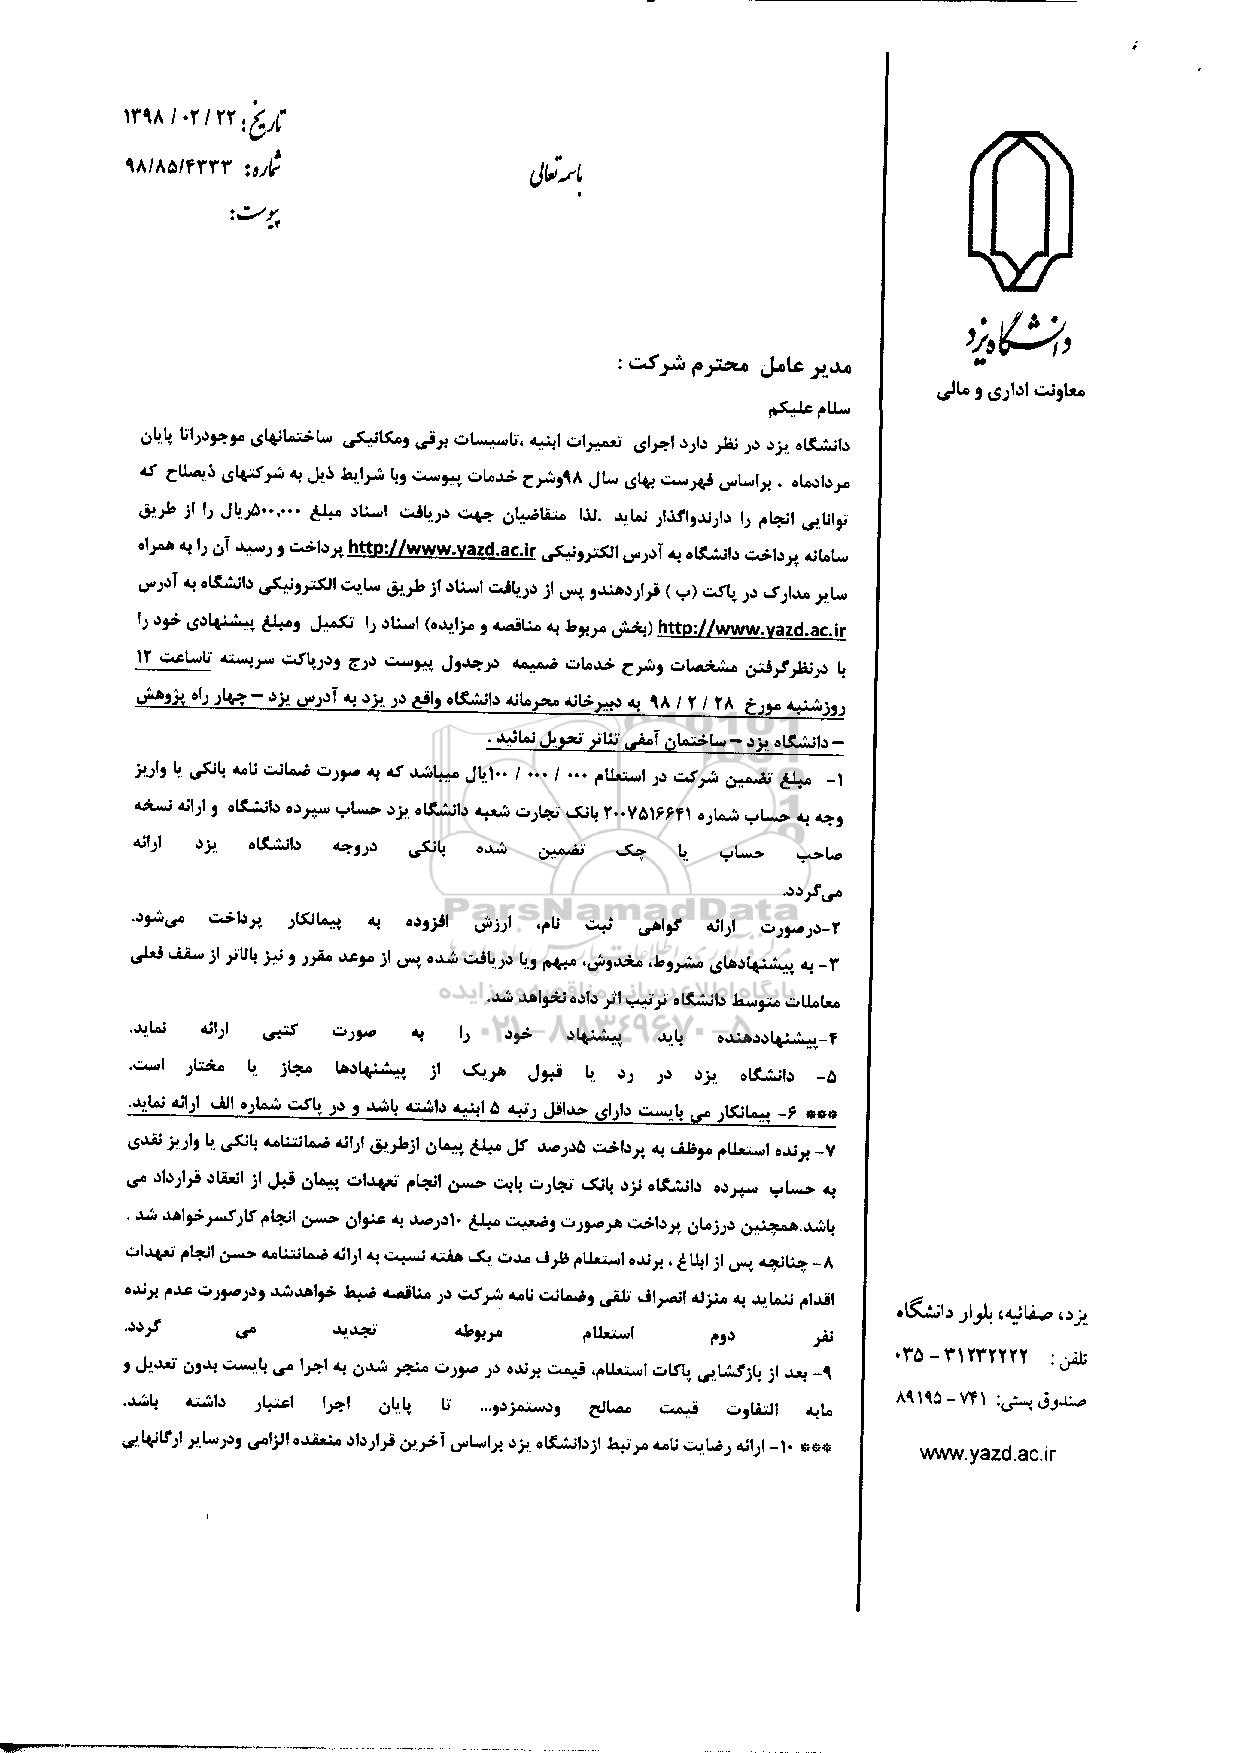 تاریخ: ۱۳۹۸/۰۲/۲۲
شماره: ۹۸/۸۵/۴۳۳۳
پیوست:
باسمه تعالی
دانشگاه یزد
معاونت اداری و مالی
مدیر عامل محترم شرکت :
سلام علیکم
دانشگاه یزد در نظر دارد اجرای تعمیرات ابنیه ،تاسیسات برقی ومکانیکی ساختمانهای موجودراتا پایان
مردادماه . براساس فهرست بهای سال ۹۸وشرح خدمات پیوست وبا شرایط ذیل به شرکتهای ذیصلاح که
توانایی انجام را دارندواگذار نماید .لذا متقاضیان جهت دریافت اسناد مبلغ ۵۰۰,۰۰۰ریال را از طریق
سامانه پرداخت دانشگاه به آدرس الکترونیکی http://www.yazd.ac.ir پرداخت و رسید آن را به همراه
سایر مدارک در پاکت (ب ) قراردهندو پس از دریافت اسناد از طریق سایت الکترونیکی دانشگاه به آدرس
http://www.yazd.ac.ir (بخش مربوط به مناقصه و مزایده) اسناد را تکمیل ومبلغ پیشنهادی خود را
با درنظرگرفتن مشخصات وشرح خدمات ضمیمه درجدول پیوست درج ودرپاکت سربسته تاساعت ۱۲
روزشنبه مورخ ۲۸ / ۲ / ۹۸ به دبیرخانه محرمانه دانشگاه واقع در یزد به آدرس یزد – چهار راه پژوهش
– دانشگاه یزد – ساختمان آمفی تئاتر تحویل نمائید .
۱- مبلغ تضمین شرکت در استعلام ۰۰۰ / ۰۰۰ / ۱۰۰ریال میباشد که به صورت ضمانت نامه بانکی یا واریز
وجه به حساب شماره ۲۰۰۷۵۱۶۶۴۱ بانک تجارت شعبه دانشگاه یزد حساب سپرده دانشگاه و ارائه نسخه
صاحب حساب یا چک تضمین شده بانکی دروجه دانشگاه یزد ارائه
می‌گردد.
۲-درصورت ارائه گواهی ثبت نام، ارزش افزوده به پیمانکار پرداخت می‌شود.
۳- به پیشنهادهای مشروط، مخدوش، مبهم ویا دریافت شده پس از موعد مقرر و نیز بالاتر از سقف فعلی
معاملات متوسط دانشگاه ترتیب اثر داده نخواهد شد.
۴-پیشنهاددهنده باید پیشنهاد خود را به صورت کتبی ارائه نماید.
۵- دانشگاه یزد در رد یا قبول هریک از پیشنهادها مجاز یا مختار است.
*** ۶- پیمانکار می بایست دارای حداقل رتبه ۵ ابنیه داشته باشد و در پاکت شماره الف ارائه نماید.
۷- برنده استعلام موظف به پرداخت ۵درصد کل مبلغ پیمان ازطریق ارائه ضمانتنامه بانکی یا واریز نقدی
به حساب سپرده دانشگاه نزد بانک تجارت بابت حسن انجام تعهدات پیمان قبل از انعقاد قرارداد می
باشد.همچنین درزمان پرداخت هرصورت وضعیت مبلغ ۱۰درصد به عنوان حسن انجام کارکسرخواهد شد .
۸- چنانچه پس از ابلاغ ، برنده استعلام ظرف مدت یک هفته نسبت به ارائه ضمانتنامه حسن انجام تعهدات
اقدام ننماید به منزله انصراف تلقی وضمانت نامه شرکت در مناقصه ضبط خواهدشد ودرصورت عدم برنده
نفر دوم استعلام مربوطه تجدید می گردد.
۹- بعد از بازگشایی پاکات استعلام، قیمت برنده در صورت منجر شدن به اجرا می بایست بدون تعدیل و
مابه التفاوت قیمت مصالح ودستمزدو... تا پایان اجرا اعتبار داشته باشد.
*** ۱۰- ارائه رضایت نامه مرتبط ازدانشگاه یزد براساس آخرین قرارداد منعقده الزامی ودرسایر ارگانهایی
ParsNamadData
پایگاه اطلاع رسانی مناقصه و مزایده
۰۲۱-۸۸۳۴۹۶۷۰-۵
یزد، صفائیه، بلوار دانشگاه
تلفن : ۳۱۲۳۲۲۲۲ – ۰۳۵
صندوق پستی: ۷۴۱ – ۸۹۱۹۵
www.yazd.ac.ir